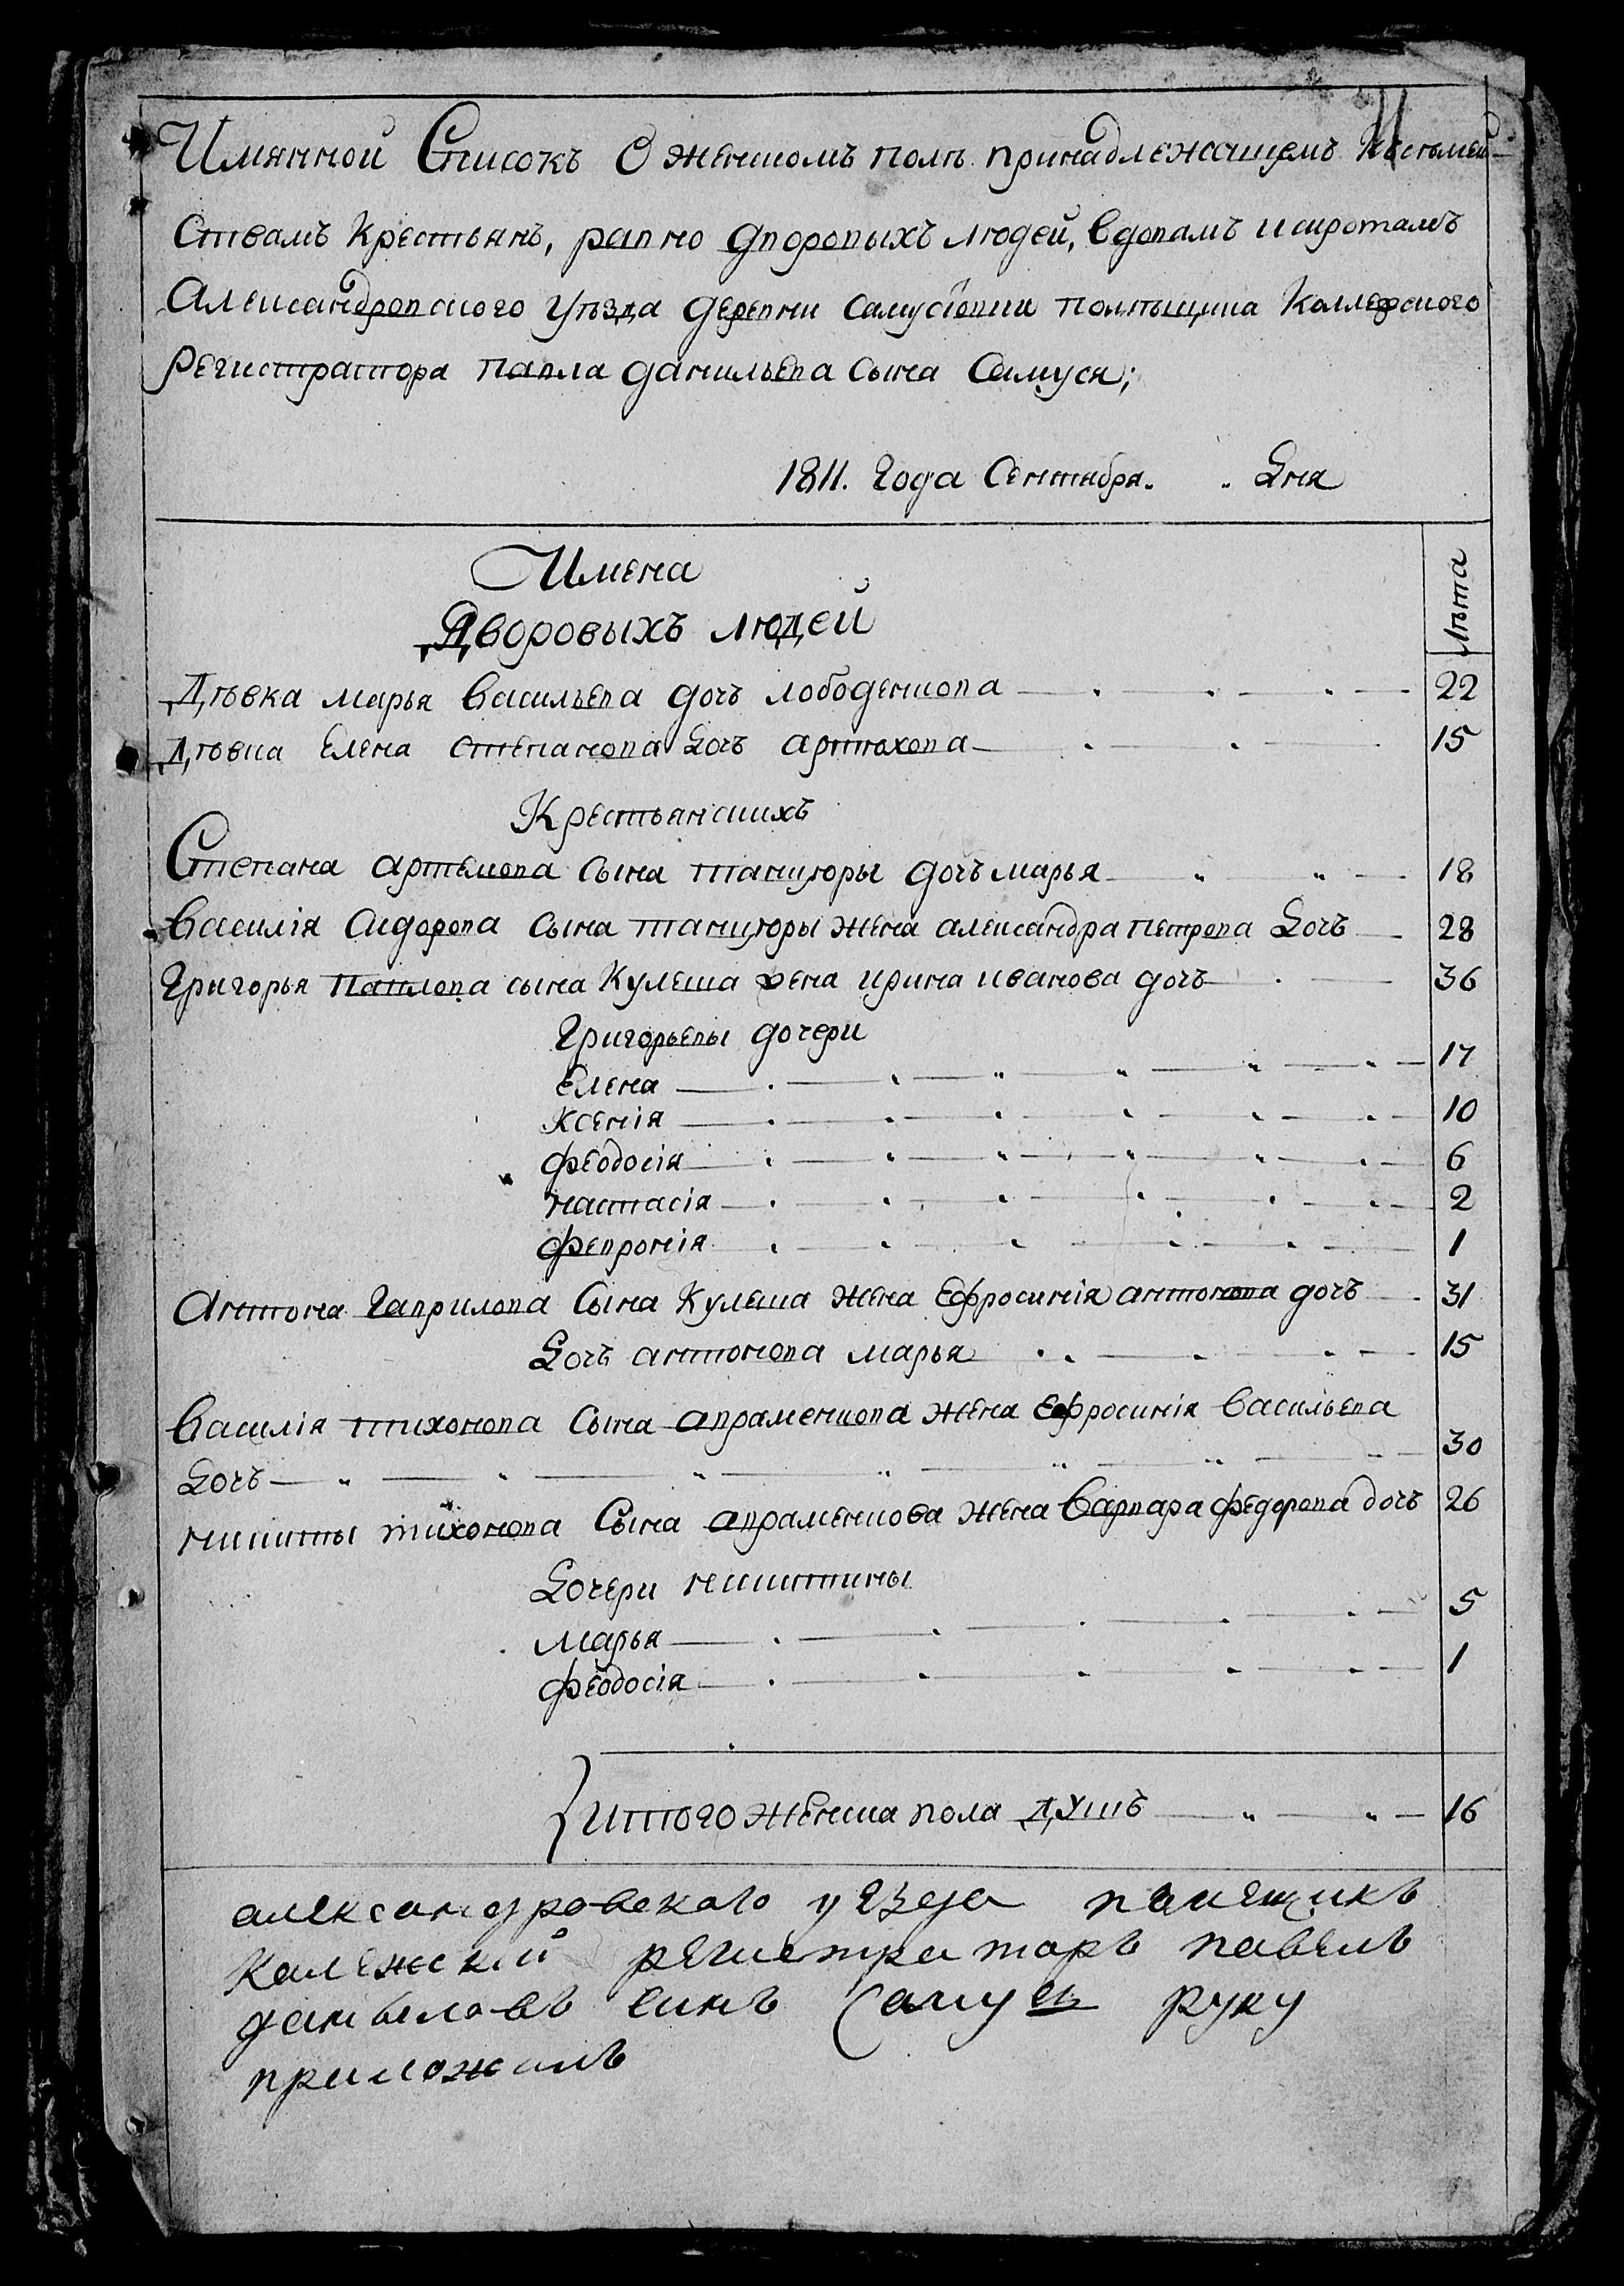 Имянной Списокъ О женскомъ полѣ принадлежащемъ къ сѣмей-
ствамъ крестьянъ, равно дворовыхъ людей, вдовамъ и сиротамъ
Александровского уѣзда деревни Самусіовки помѣщика Коллежского
Регистратора Павла Данильева сына Самуся;
1811. Года Сентября. .. Дня
Имена
Лѣта
Дворовыхъ людей
Дѣвка марья Васильева дочь лободенкова 22
Дѣвка Елена степанова Дочь артюхова 15
Крестьянскихъ
Степана артемова сына танцюры дочь марья 18
Василія Сидорова сына танцюры жена александра петрова Дочь 28
Григорья павлова сына Кулеша жена ирина иванова дочь 36
Григорьевы дочери
Елена 17
Ксенія 10
феодосія 6
настасія 2
февронія 1
Антона гаврилова Сына Кулеша жена Ефросинія антонова дочь 31
Дочь антонова марья 15
Василія тихонова Сына авраменкова жена Ефросинія Васильева
Дочь 30
никиты тихонова Сына авраменкова жена Варвара федорова дочь 26
Дочери никитины
Марья 5
феодосія 1
итого женска пола душъ 16
александровскаго уезда памещикъ
калежский регистраторъ павелъ
даныловъ синъ Самусь руку
приложилъ